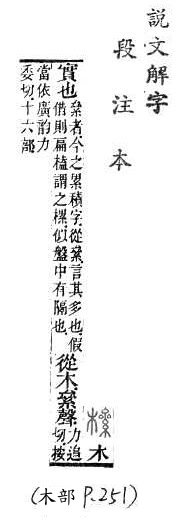 說文解字
段注本
木
實也
絫者今之累積字從絫言其多也假
借則扁榼謂之樏似盤中有隔也
從木絫聲
力追
切按
當依廣韵力
委切十六部
(木部 P.251)